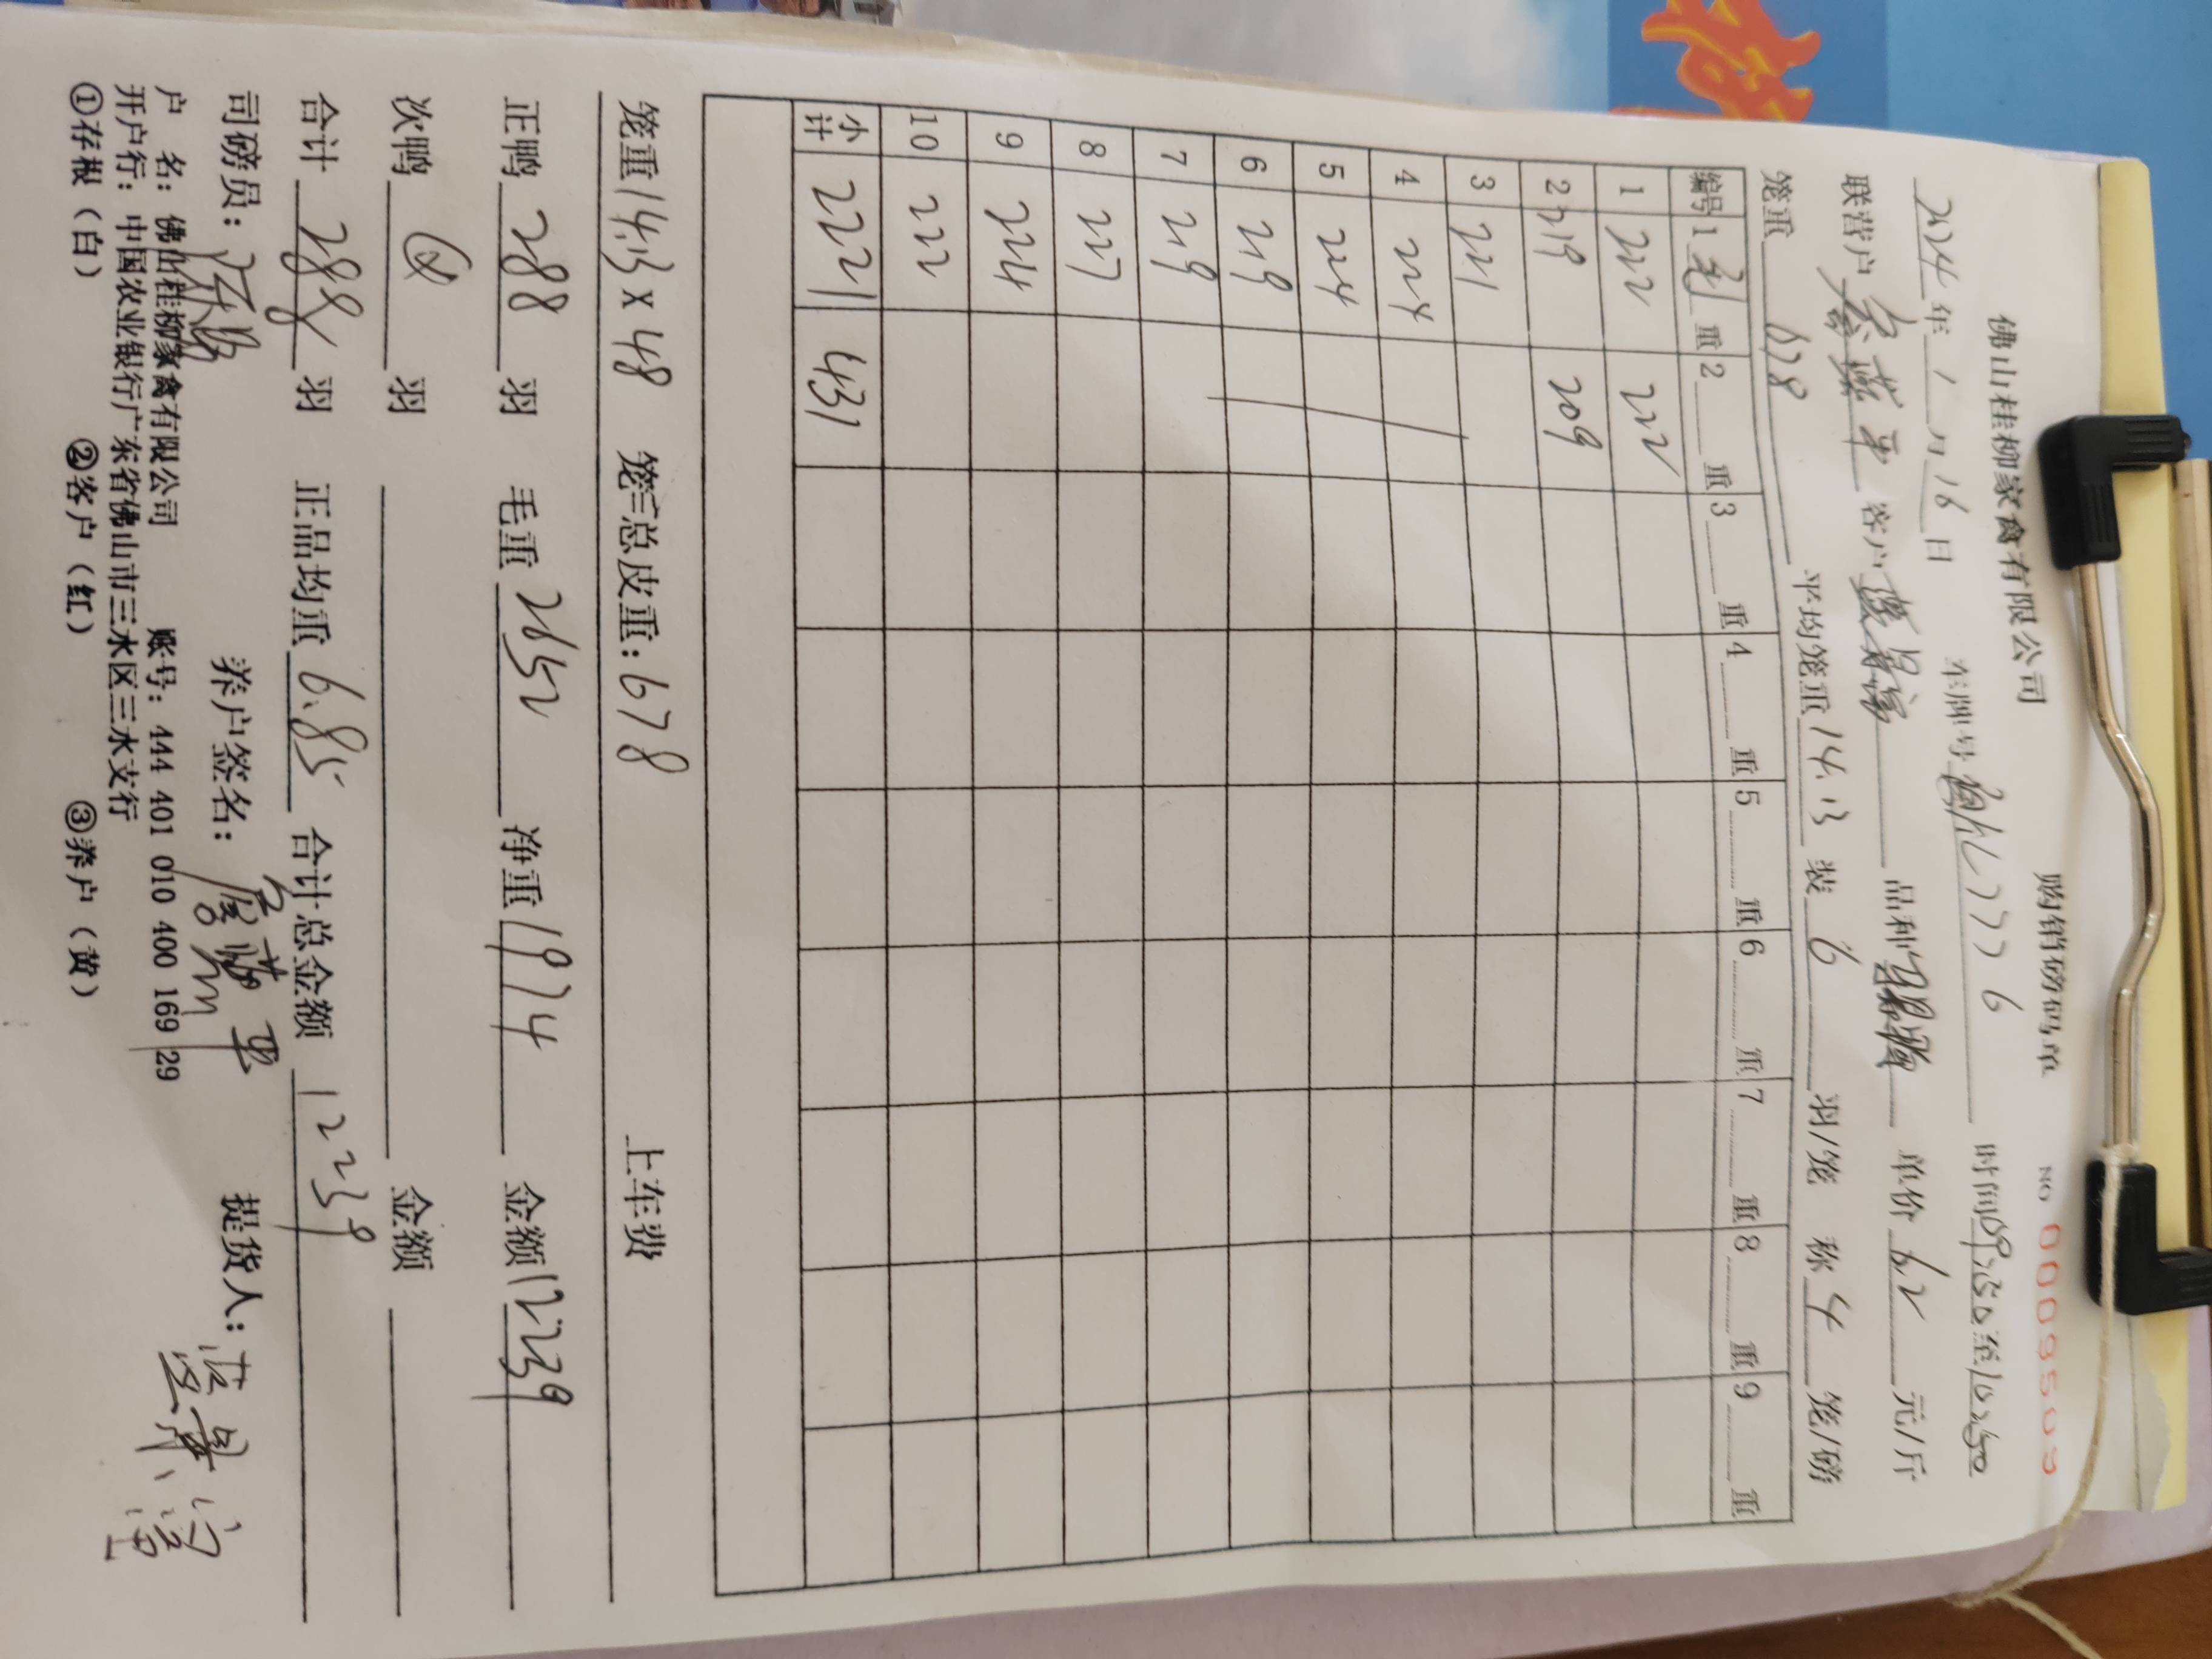 佛山桂柳家禽有限公司 购销磅码单 NO 0009503
2024年1月16日 车牌号 7776 时间09:50至10:50
联营户 客户 蓝景富 品种 单价6.2元/斤
笼重678 平均笼重14.13 装6羽/笼 称4笼/磅
编号 1毛重 2重 3重 4重 5重 6重 7重 8重 9重
1 222 222
2 219 209
3 221
4 224
5 224
6 219
7 219
8 227
9 224
10 222
小计 2221 431
笼重14.13×48 笼三总皮重:678 上车费
正鸭288羽 毛重2652 净重1974 金额12239
次鸭0羽 金额
合计288羽 正品均重6.85 合计总金额12239
司磅员: 养户签名: 提货人:蓝景富
户 名:佛山桂柳家禽有限公司 账号:444 401 010 400 169 29
开户行:中国农业银行广东省佛山市三水区三水支行
①存根(白) ②客户(红) ③养户(黄)